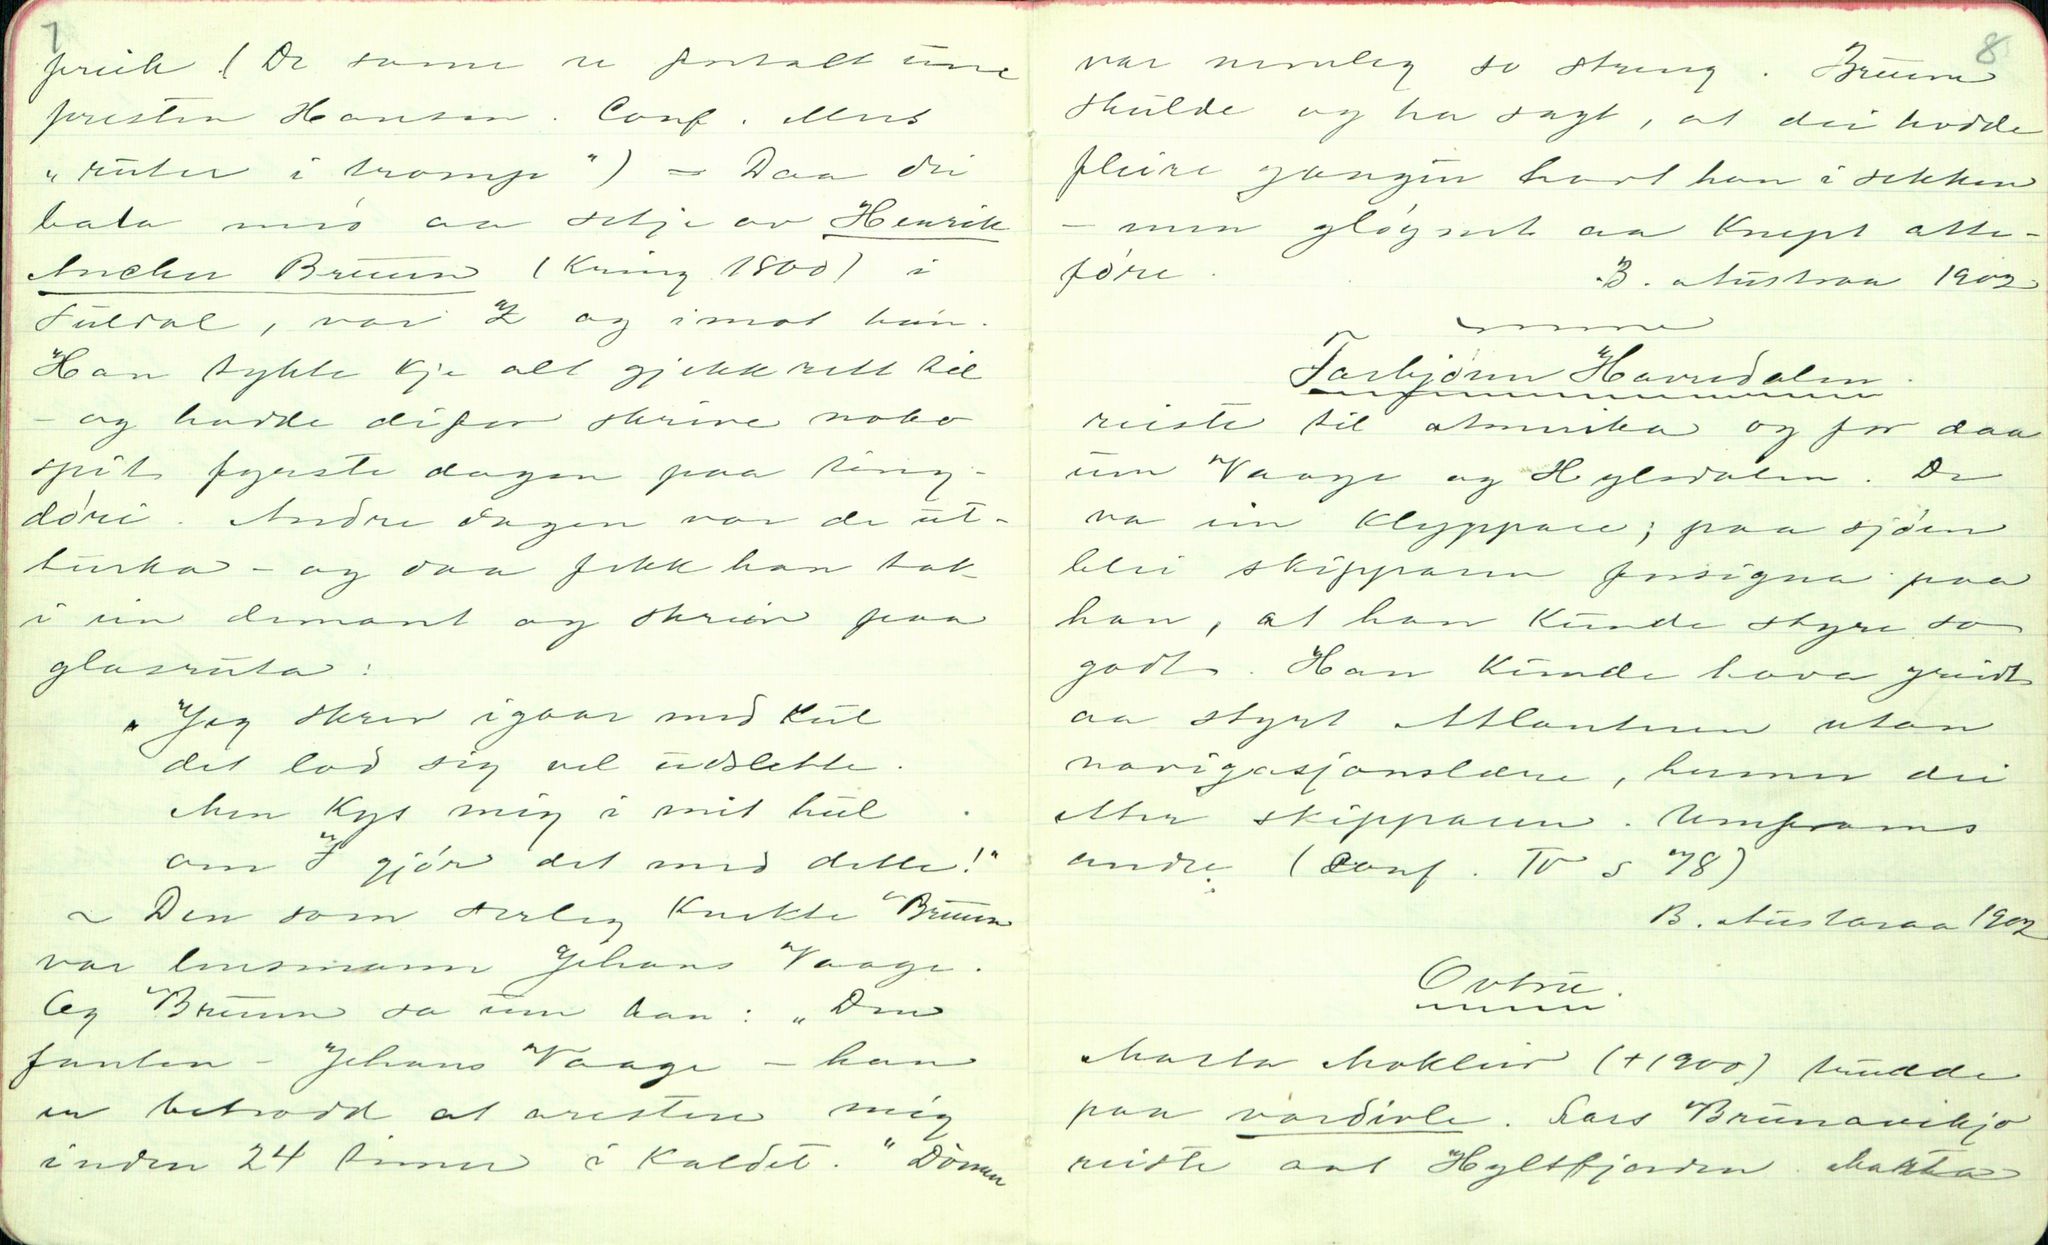 7
preik (De same er fortalt um
presten Hansen. Conf. Mus
"ruter i tromp") — Daa dei
bala med aa setje av Henrik
Ancher Bruun (kring 1800) i
Suldal, var Z og imot han.
Han tykte kje alt gjekk rett til
- og hadde difor skrive noko
spit fyrste dagen paa ting-
döri. Andre dagen var de ut-
turka - og daa fekk han tak
i ein demant og skreiv paa
glasruta:
"Jeg skrev igaar med kul
det lod sig vel udslette.
Men kys mig i mit hul
om I gjör det med dette!"
~ Den som serleg knekte Bruun
var lensmann Johans Vaage.
Og Bruun sa um han: "Den
fanten - Johans Vaage - han
er betrodd at arestere mig
inden 24 timer i Kaldet." Dómen
8
var nemleg so streng. Bruun
skulde og ha sagt, at dei hadde
fleire gangur havt han i sekken
- men gløymt aa knept atte-
före. B. Austraa 1902
Torbjörn Havredalen.
reiste til Amerika og for daa
um Vaage og Hylsdalen. De
va ein klyppare; paa sjöen
blei skipparen forsigna paa
han, at han kunde styre so
godt. Han kunde hava greidt
aa styrt Atlanteren utan
navigasjonslære, henner dei
etter skipparen. Umframs
andre (Conf. IV s 78)
B. Austaraa 1902
Ovtru.
Marta Mokleiv (+1900) trudde
paa vardivle. Lars Brunavikjo
reiste aat Hylsfjorden. Marta